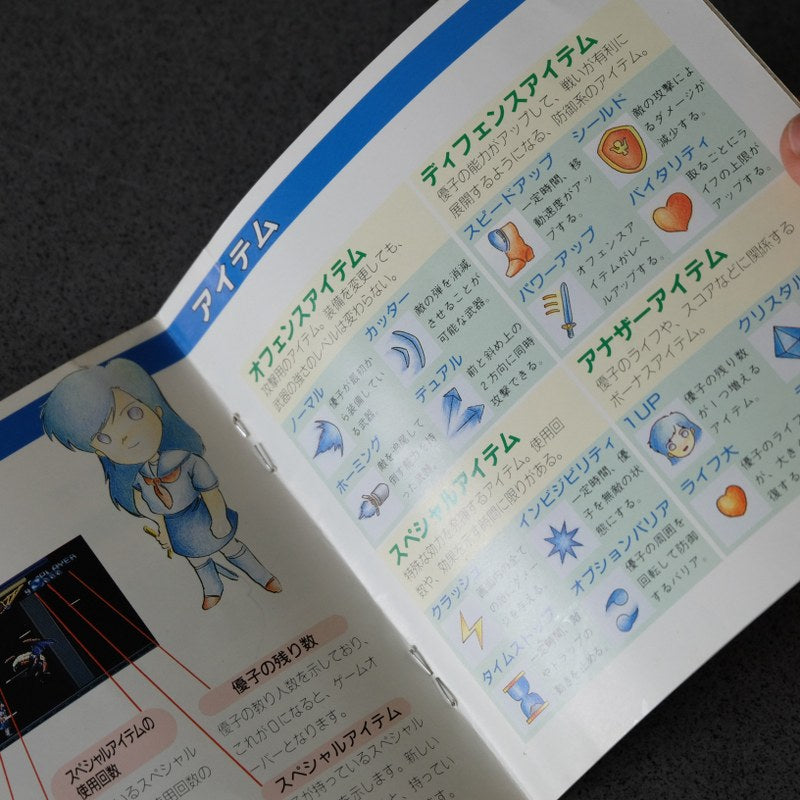 アイテム
オフェンスアイテム
攻撃用のアイテム。装備を変更しても、
武器の強さのレベルは変わらない。
ノーマル
優子が最初か
ら装備してい
る武器。
カッター
敵の弾を消滅
させることが
可能な武器。
ホーミング
敵を追尾して
倒す能力を持
った武器。
デュアル
前と斜め上の
2方向に同時
攻撃できる。
ディフェンスアイテム
優子の能力がアップして、戦いが有利に
展開するようになる、防御系のアイテム。
スピードアップ
一定時間、移
動速度がアッ
プする。
シールド
敵の攻撃によ
るダメージが
減少する。
パワーアップ
オフェンスア
イテムがレベ
ルアップする。
バイタリティ
取るごとにラ
イフの上限が
アップする。
スペシャルアイテム
特殊な効力を発揮するアイテム。使用回
数や、効果を示す時間に限りがある。
クラッシュ
インビジビリティ
一定時間、優
子を無敵の状
態にする。
タイムストップ
一定時間、敵
やトラップの
動きを止める。
オプションバリア
優子の周囲を
回転して防御
するバリア。
アナザーアイテム
優子のライフや、スコアなどに関係する
ボーナスアイテム。
1UP
優子の残り数
が1つ増える
アイテム。
クリスタル
ライフ大
優子のライフ
が、大き
復する
優子の残り数
優子の残り人数を示しており、
これが0になると、ゲームオ
ーバーとなります。
スペシャルアイテムの
使用回数
いるスペシャル
使用回数の
スペシャルアイテム
子が持っているスペシャル
を示します。新しい
と、持ってい
ます。